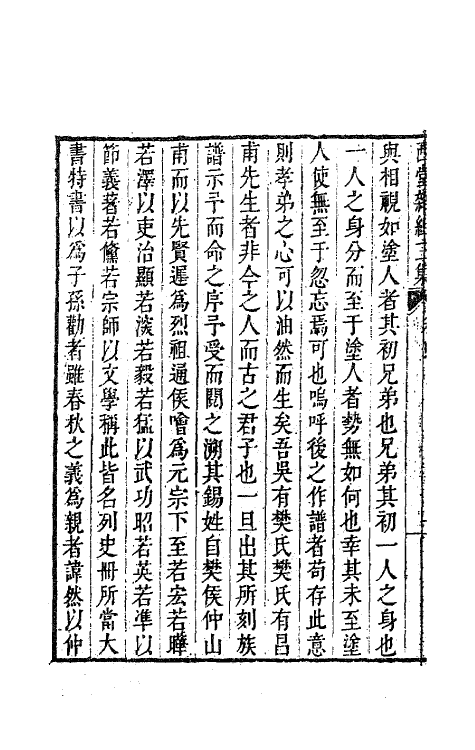 西堂雜組三集
與相視如塗人者其初兄弟也兄弟其初一人之身也
一人之身分而至于塗人者勢無如何也幸其未至塗
人使無至于忽忘焉可也嗚呼後之作譜者苟存此意
則孝弟之心可以油然而生矣吾吳有樊氏樊氏有昌
甫先生者非今之人而古之君子也一旦出其所刻族
譜示予而命之序予受而閱之溯其錫姓自樊侯仲山
甫而以先賢遲為烈祖通侯噲為元宗下至若宏若曄
若澤以吏治顯若淡若毅若猛以武功昭若英若準以
節義著若儵若宗師以文學稱此皆名列史冊所當大
書特書以為子孫勸者雖春秋之義為親者諱然以仲